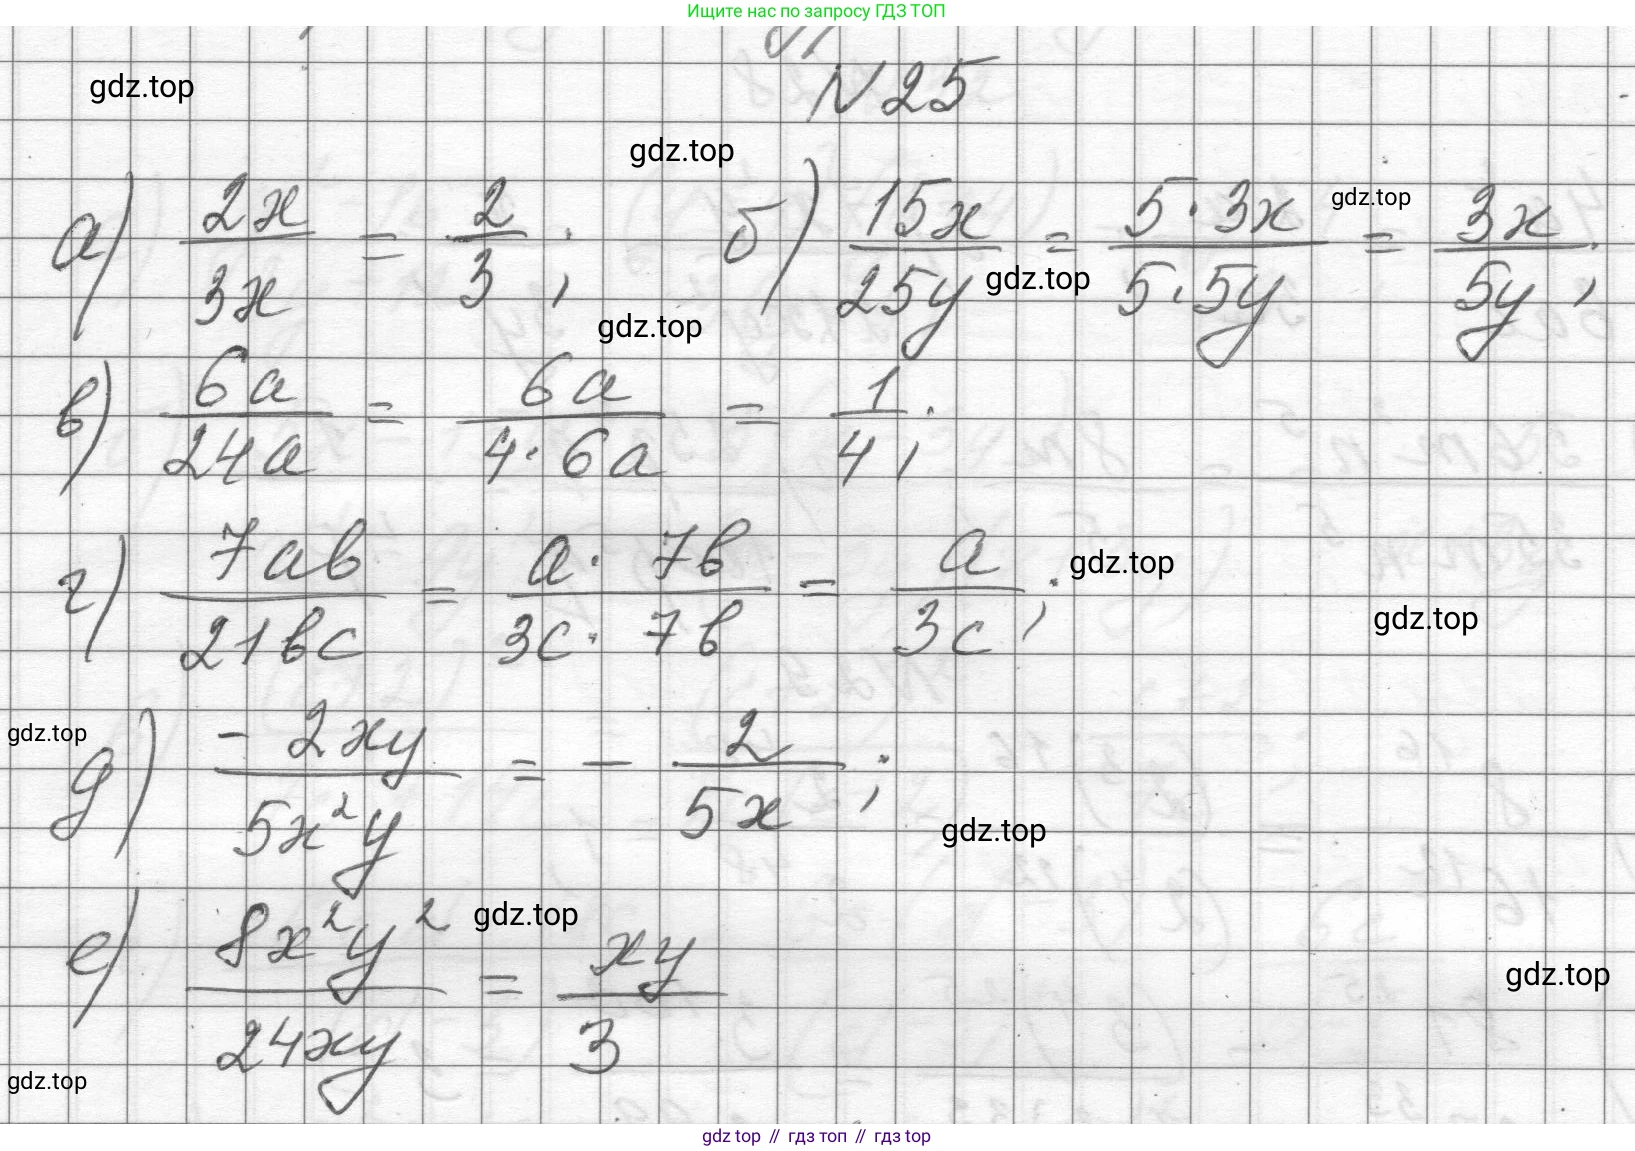 Ищите нас по запросу ГДЗ ТОП
N 25
gdz.top
gdz.top
а) 2x/3x = 2/3; б) 15x/25y = 5·3x/5·5y = 3x/5y;
gdz.top
gdz.top
gdz.top
в) 6a/24a = 6a/4·6a = 1/4;
г) 7ab/21bc = a·7b/3c·7b = a/3c;
gdz.top
gdz.top
д) -2xy/5x²y = -2/5x;
gdz.top
gdz.top
е) 8x²y²/24xy = xy/3
gdz.top
gdz.top
gdz.top
gdz top // гдз топ // гдз top